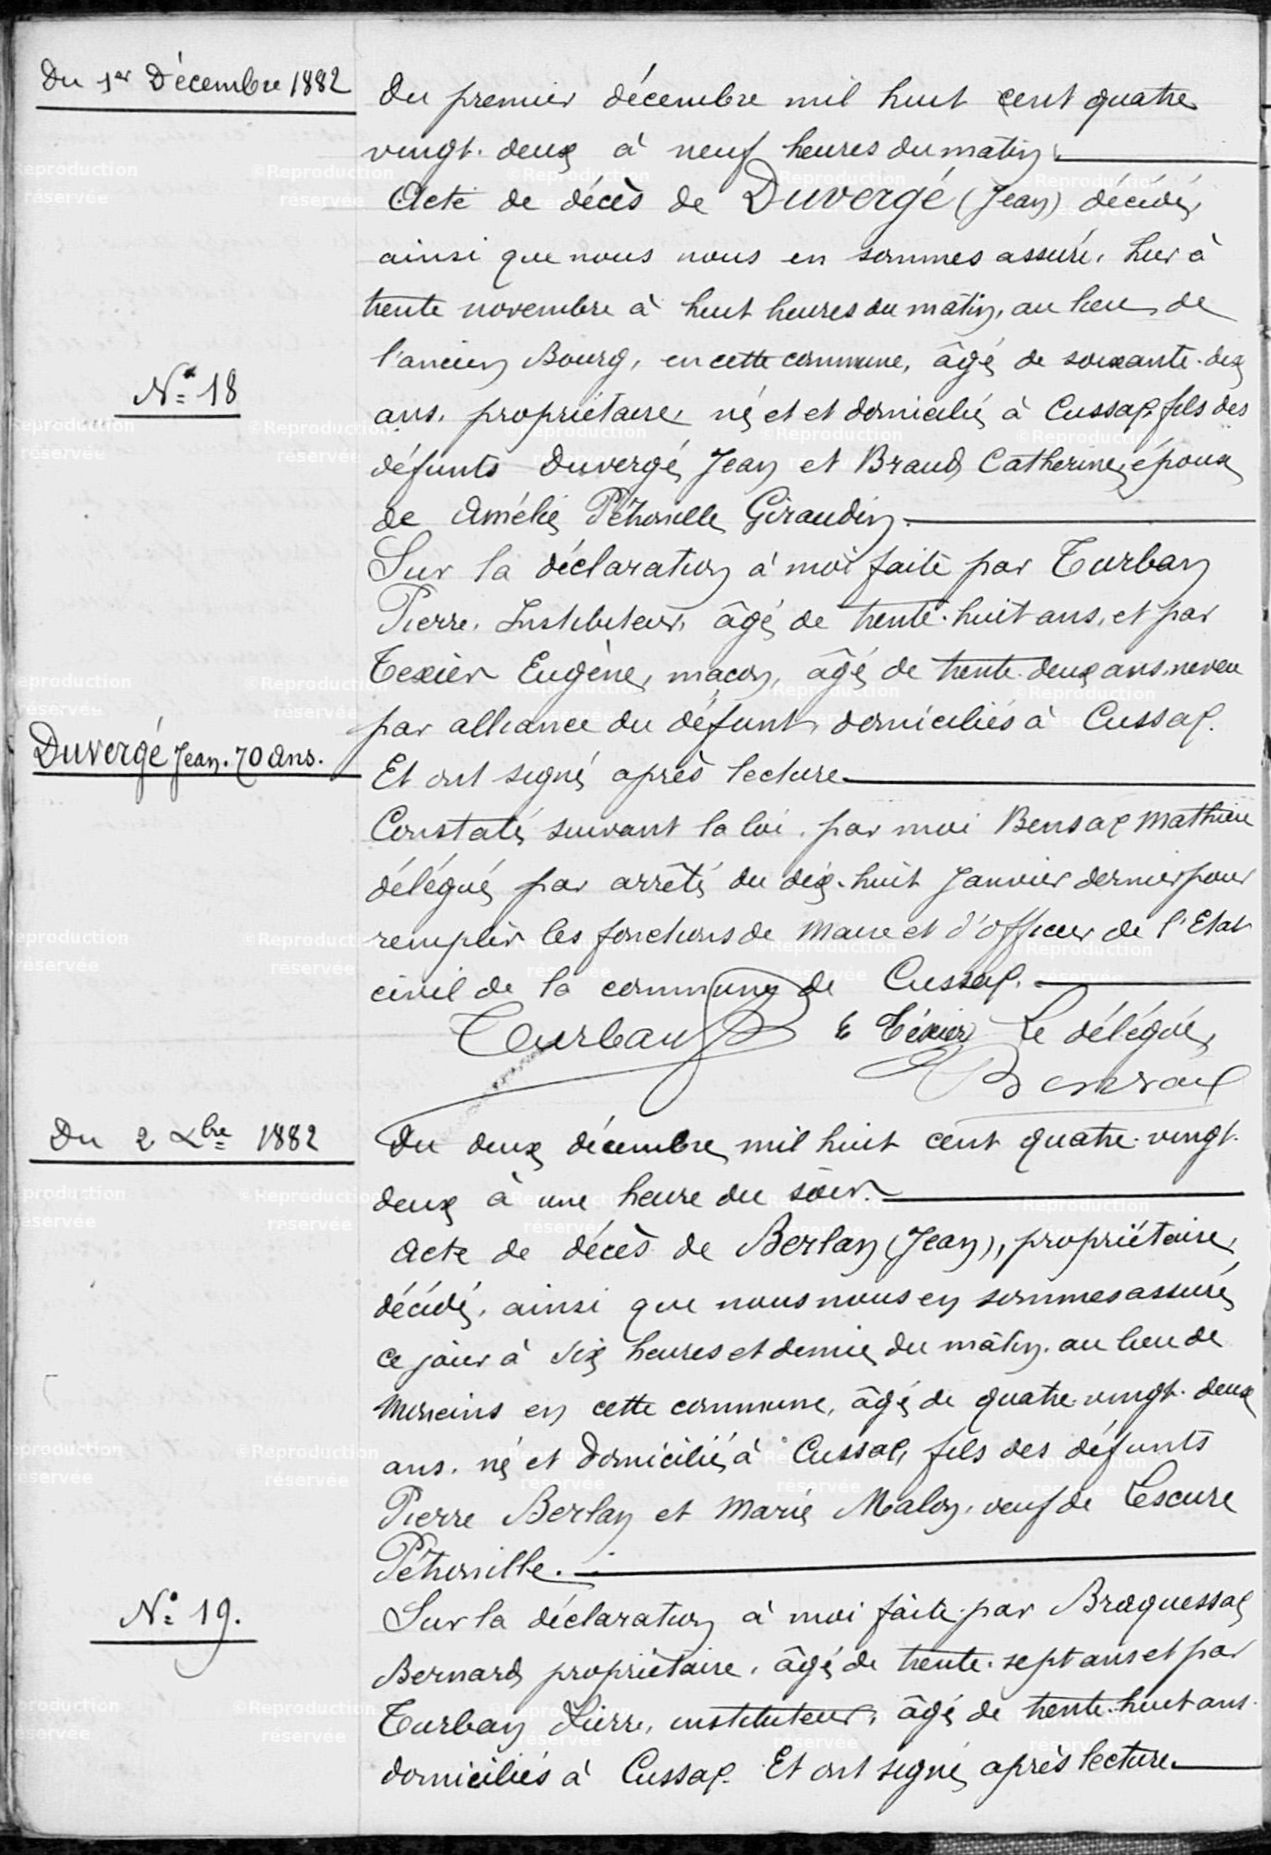 Du 1er Décembre 1882
Du premier décembre mil huit cent quatre
vingt. deux à neuf heures du matin.
Acte de décès de Duvergé (Jean) décédé,
ainsi que nous nous en sommes assuré, hier à
trente novembre à huit heures du matin, au lieu de
l'ancien Bourg, en cette commune, âgé de soixante. dix
N° 18
ans, propriétaire, né et et domicilié à Cussac, fils des
défunts Duvergé Jean et Braud Catherine, époux
de Amélie Pétronille Giraudin.
Sur la déclaration à moi faite par Turban
Pierre, Instituteur, âgé de trente. huit ans, et par
Texier Eugène, maçon, âgé de trente. deux ans, neveu
par alliance du défunt, domiciliés à Cussac.
Duvergé Jean. 70 ans.
Et ont signé après lecture.
Constaté, suivant la loi, par moi Bensac Mathieu
délégué par arrêté du dix. huit Janvier dernier pour
remplir les fonctions de Maire et d'officier de l'Etat
civil de la commune de Cussac.
Turban E Texier Le délégué,
Bensac
Du 2 Xbre 1882
Du deux décembre mil huit cent quatre. vingt.
deux à une heure du soir.
Acte de décès de Berlan (Jean), propriétaire,
décédé, ainsi que nous nous en sommes assuré,
ce jour à six heures et demie du matin, au lieu de
en cette commune, âgé de quatre. vingt. deux
ans, né et domicilié à Cussac, fils des défunts
Pierre Berlan et Marie Malon, veuf de Lescure
Pétronille.
N° 19.
Sur la déclaration à moi faite par Braquessac
Bernard propriétaire, âgé de trente. sept ans et par
Turban Pierre, instituteur, âgé de trente. huit ans.
domiciliés à Cussac. Et ont signé après lecture.